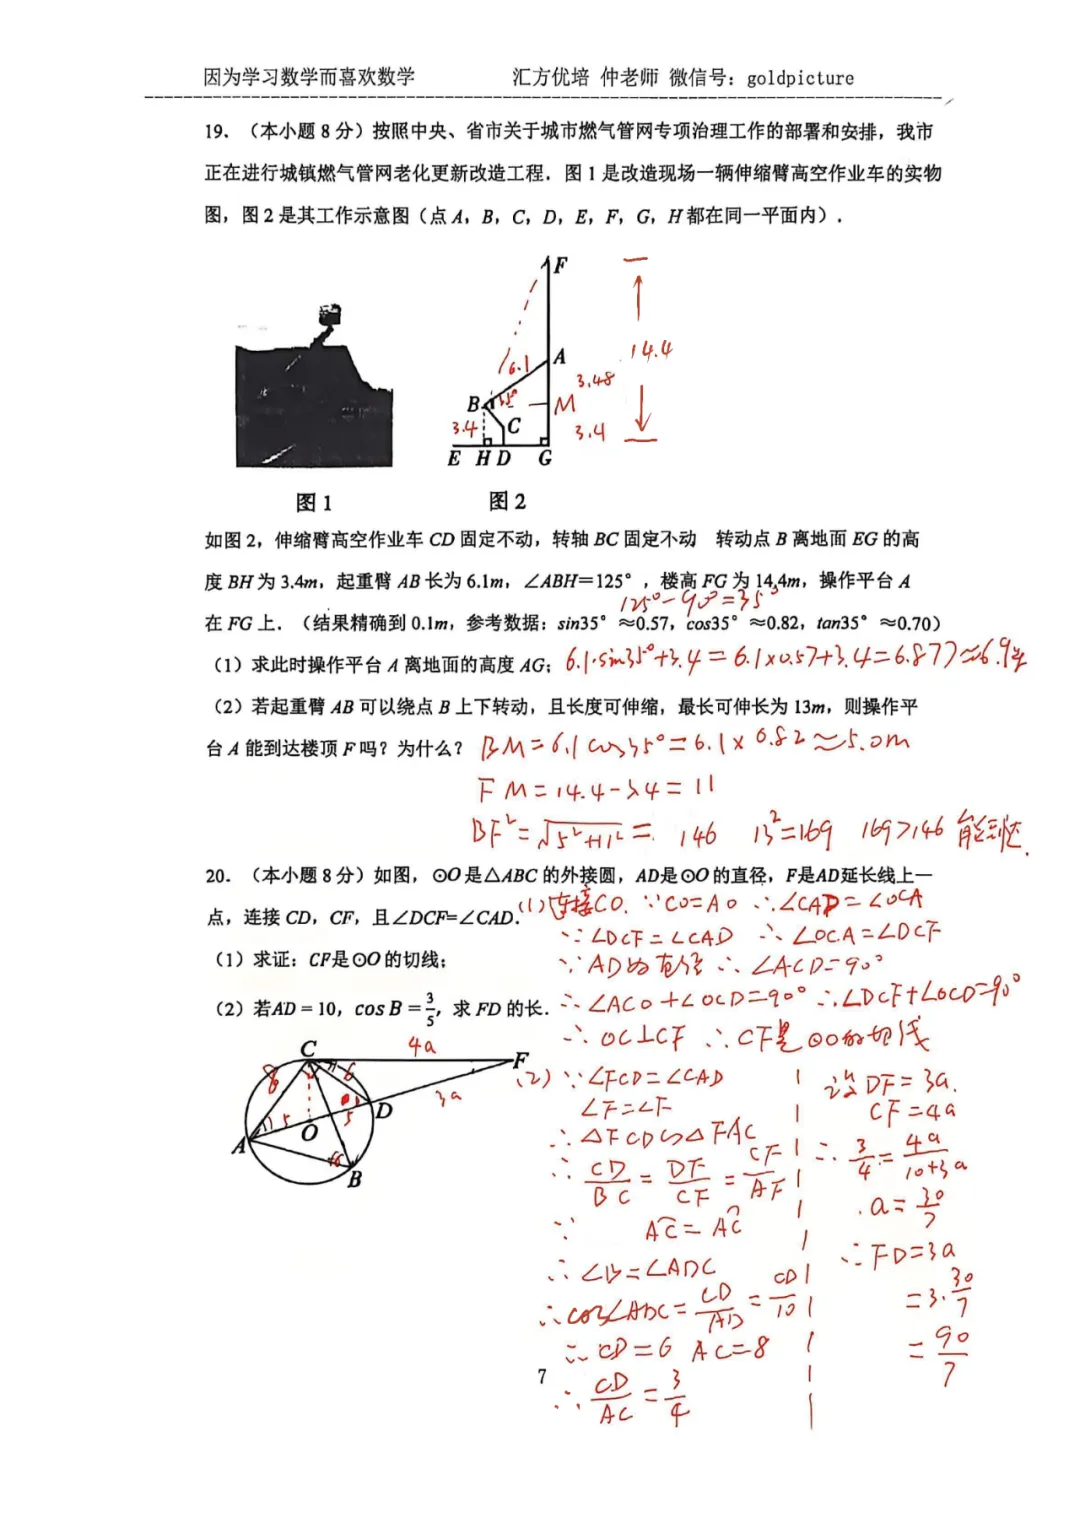 因为学习数学而喜欢数学 汇方优培 仲老师 微信号：goldpicture
19. （本小题 8 分）按照中央、省市关于城市燃气管网专项治理工作的部署和安排，我市
正在进行城镇燃气管网老化更新改造工程．图 1 是改造现场一辆伸缩臂高空作业车的实物
图，图 2 是其工作示意图（点 A，B，C，D，E，F，G，H 都在同一平面内）．
F
A
6.1
14.4
3.48
B 35° M
3.4 C 3.4
E H D G
图 1 图 2
如图 2，伸缩臂高空作业车 CD 固定不动，转轴 BC 固定不动 转动点 B 离地面 EG 的高
度 BH 为 3.4m，起重臂 AB 长为 6.1m，∠ABH=125°，楼高 FG 为 14.4m，操作平台 A
125°-90°=35°
在 FG 上．（结果精确到 0.1m，参考数据：sin35°≈0.57，cos35°≈0.82，tan35°≈0.70）
（1）求此时操作平台 A 离地面的高度 AG； 6.1·sin35°+3.4=6.1×0.57+3.4=6.877≈6.9米
（2）若起重臂 AB 可以绕点 B 上下转动，且长度可伸缩，最长可伸长为 13m，则操作平
台 A 能到达楼顶 F 吗？为什么？ BM=6.1cos35°=6.1×0.82≈5.0m
FM=14.4-3.4=11
BF²=√5²+11²=146 13²=169 169>146 能到达.
20. （本小题 8 分）如图，⊙O 是△ABC 的外接圆，AD是⊙O 的直径，F是AD延长线上一
点，连接 CD，CF，且∠DCF=∠CAD．
(1)连接CO. ∵CO=AO ∴∠CAD=∠OCA
∵∠DCF=∠CAD ∴∠OCA=∠DCF
（1）求证：CF是⊙O 的切线；
∵AD为直径 ∴∠ACD=90°
（2）若AD = 10，cos B = 3/5，求 FD 的长．
∴∠ACO+∠OCD=90° ∴∠DCF+∠OCD=90°
∴OC⊥CF ∴CF是⊙O的切线
C 4a F
8 6
3a
A 5 O 5 D
B
(2) ∵∠FCD=∠CAD
∠F=∠F
∴△FCD∽△FAC
∴CD/BC=DF/CF=CF/AF
∵ AC=AC
∴∠B=∠ADC
∴cos∠ADC=CD/AD=CD/10
∴CD=6 AC=8
∴CD/AC=3/4
设DF=3a.
CF=4a
∴3/4=4a/10+3a
a=30/7
∴FD=3a
=3·30/7
=90/7
7